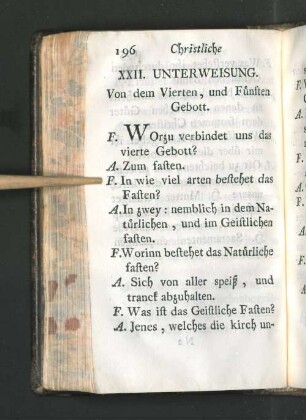 196 Christliche
XXII. UNTERWEISUNG.
Von dem Vierten, und Fünften
Gebott.
F. Worzu verbindet uns das
vierte Gebott?
A. Zum fasten.
F. In wie viel arten bestehet das
Fasten?
A. In zwey: nemblich in dem Na-
türlichen, und im Geistlichen
fasten.
F. Worinn bestehet das Natürliche
fasten?
A. Sich von aller speiß, und
tranck abzuhalten.
F. Was ist das Geistliche Fasten?
A. Jenes, welches die kirch un-